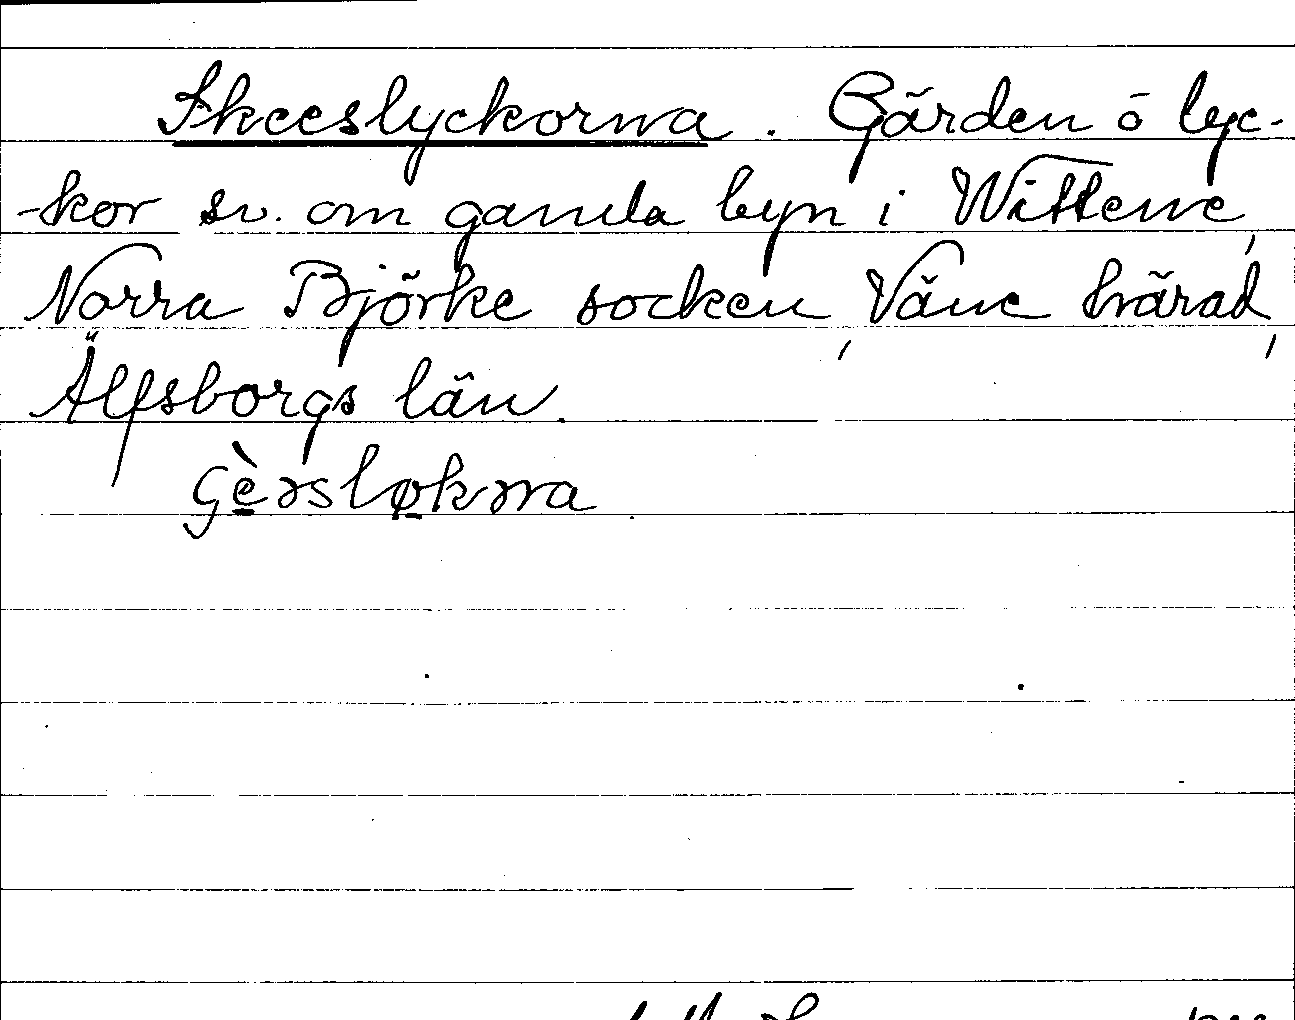 Skeeslyckorna. Gärden ö lyc-
-kor sv. om gamla byn i Wittene,
Norra Björke socken, Väne härad,
Älfsborgs län.